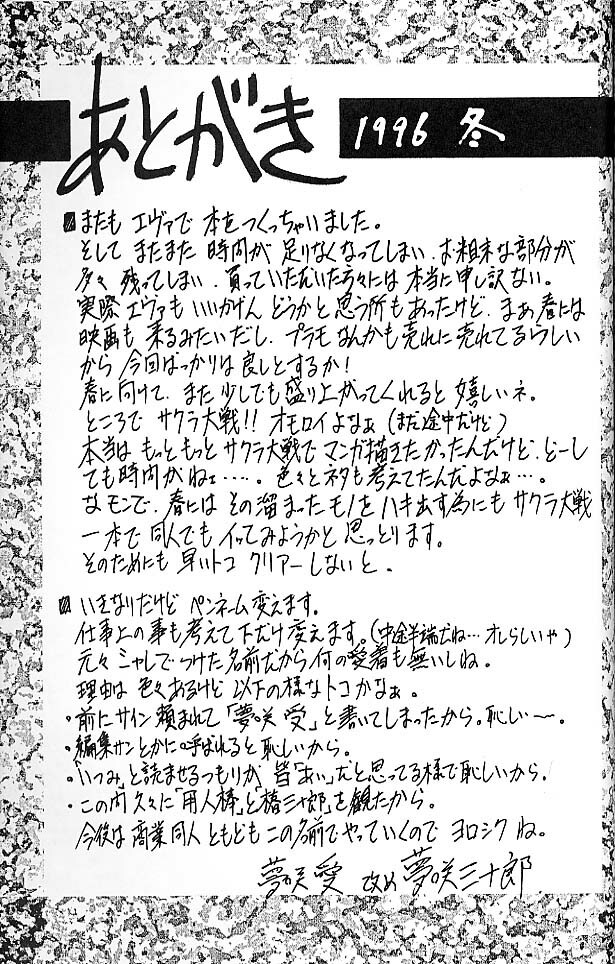 あとがき
1996 冬
またも エヴァで 本をつくっちゃいました。
そして またまた 時間が 足りなくなってしまい、お粗末な部分が
多々 残ってしまい、買っていただいた方々には 本当に申し訳ない。
実際 エヴァも いいかげん どうかと思う所もあったけど、まぁ春には
映画も 来るみたいだし、プラモなんかも売れに売れてるらしい
から 今回ばっかりは良しとするか!
春に向けて、また少しでも盛り上がってくれると嬉しいネ。
ところで サクラ大戦!! オモロイよなぁ (まだ途中だけど)
本当は もっともっと サクラ大戦で マンガ描きたかったんだけど、どーし
ても時間がねェ・・・・。色々とネタも考えてたんだよなぁ・・・。
なモンで、春には その溜まったモノを ハキ出す為にも サクラ大戦
一本で 同人でも イってみようかと 思っとります。
そのためにも 早いトコ クリアーしないと。
いきなりだけど ペンネーム変えます。
仕事上の事も考えて下だけ変えます。(中途半端だね… オレらしいや)
元々 シャレで つけた名前だから 何の愛着も無いしね。
理由は 色々あるけど 以下の様なトコかなぁ。
・前にサイン頼まれて「夢咲 受」と書いてしまったから。恥しい〜。
・編集サンとかに呼ばれると恥しいから。
・「いつみ」と読ませるつもりが 皆「あい」だと思ってる様で恥しいから。
・この内 久々に「用人棒」と「椿三十郎」を観たから。
今後は 商業 同人 ともども この名前でやっていくので ヨロシク ね。
夢咲愛 改め 夢咲三十郎